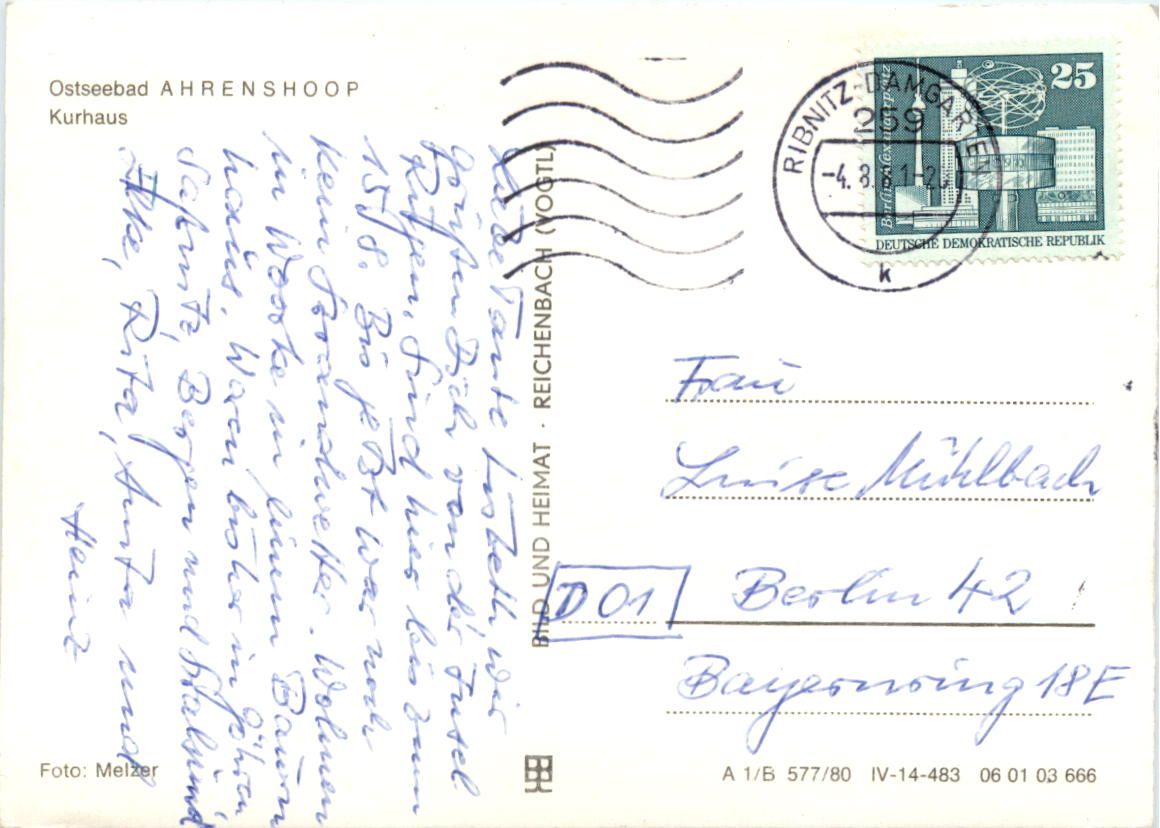 Ostseebad AHRENSHOOP
Kurhaus
Liebe Tante Lisbeth wir
grüßen Dich von der Insel
Rügen. Sind hier bis zum
15.8. Bis jetzt war noch
kein Strandwetter. Wohnen
in in einem Bauern
haus. Waren bisher in Göhren
Saßnitz, Bergen und Stralsund
Rita, Anita und
Heinz
BILD UND HEIMAT · REICHENBACH (VOGTL)
RIBNITZ-DAMGARTEN
259
-4.8. 1-2
k
25
Berlin-Alexanderplatz
DEUTSCHE DEMOKRATISCHE REPUBLIK
Frau
Luise Mühlbach
D 01
Berlin 42
Bayernring 18E
Foto: Melzer
A 1/B 577/80 IV-14-483 06 01 03 666